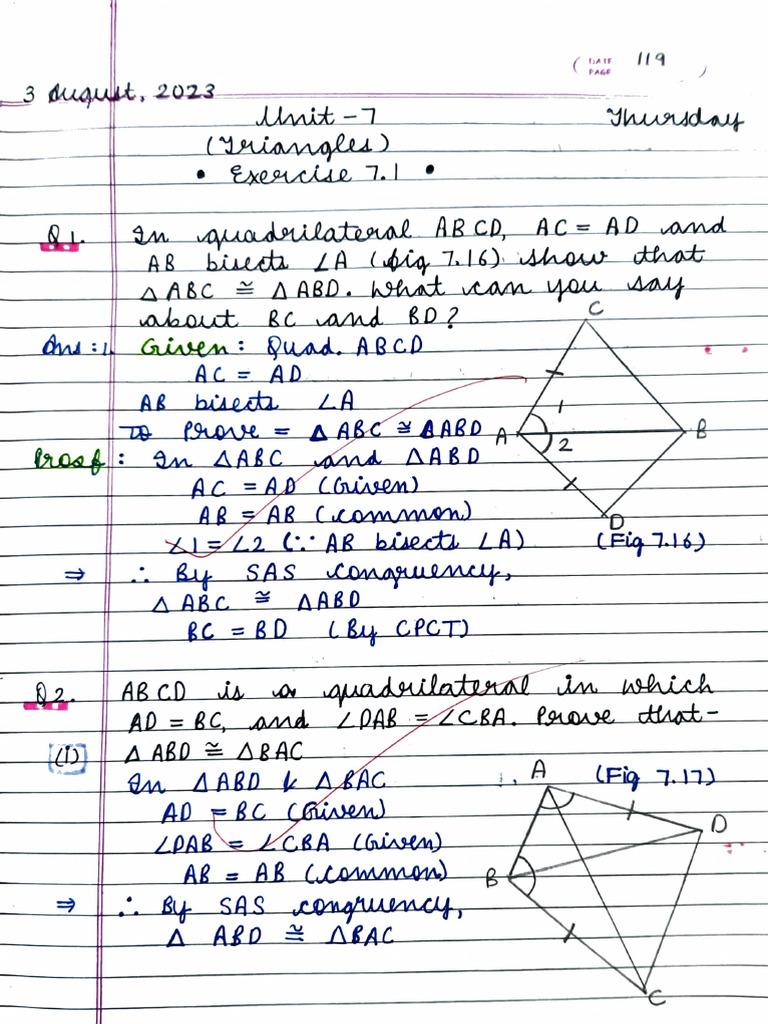 DATE
PAGE 119
3 August, 2023
Unit - 7 Thursday
(Triangles)
• Exercise 7.1 •
Q1. In quadrilateral ABCD, AC = AD and
AB bisects ∠A (fig 7.16) show that
△ABC ≅ △ABD. What can you say
about BC and BD?
Ans:1. Given: Quad. ABCD
AC = AD
AB bisects ∠A
To Prove = △ABC ≅ △ABD
Proof: In △ABC and △ABD
AC = AD (Given)
AB = AB (common)
∠1 = ∠2 (∵ AB bisects ∠A)
⇒ ∴ By SAS congruency,
△ABC ≅ △ABD
BC = BD (By CPCT)
C
1
A B
2
D
(Fig 7.16)
Q2. ABCD is a quadrilateral in which
AD = BC, and ∠DAB = ∠CBA. Prove that-
(i) △ABD ≅ △BAC
In △ABD & △BAC
AD = BC (Given)
∠DAB = ∠CBA (Given)
AB = AB (common)
⇒ ∴ By SAS congruency,
△ ABD ≅ △BAC
A (Fig 7.17)
D
B
C